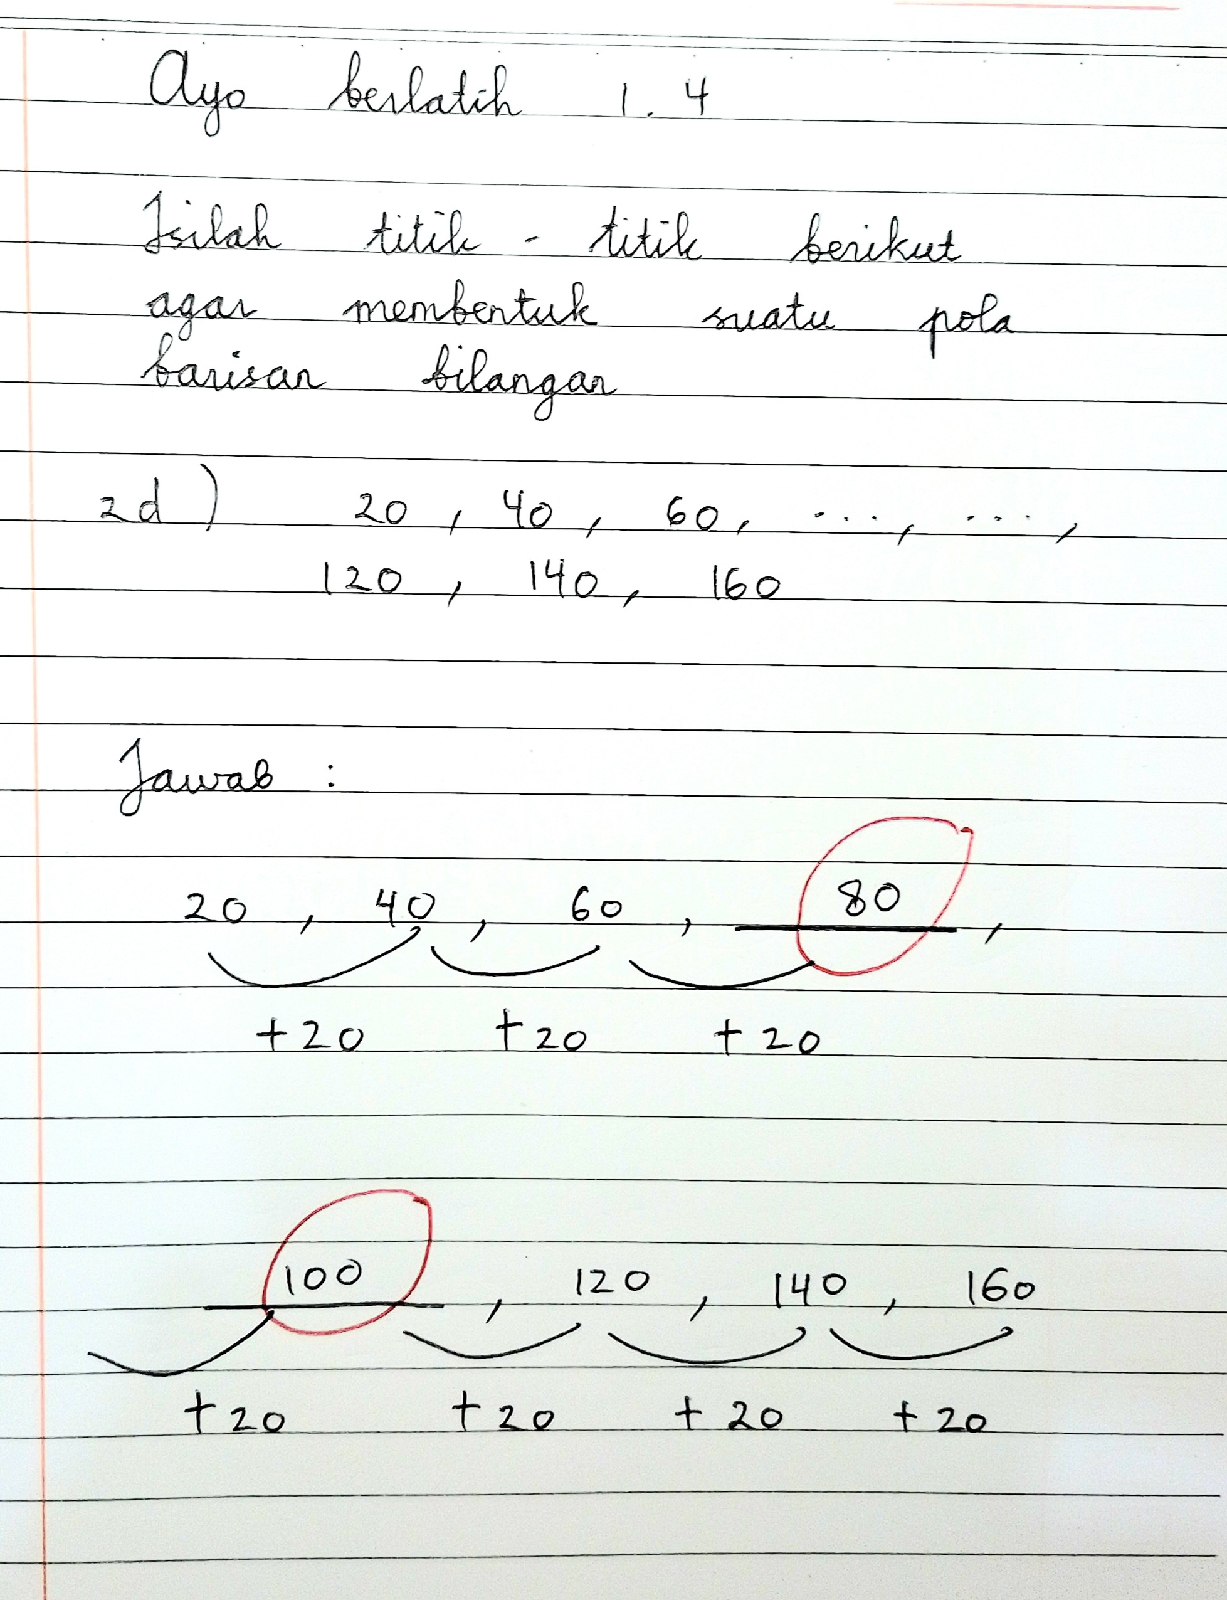 Ayo berlatih 1.4
Isilah titik - titik berikut
agar membentuk suatu pola
barisan bilangan
2d) 20, 40, 60, ..., ...,
120, 140, 160
Jawab :
20, 40, 60, 80,
+20 +20 +20
100, 120, 140, 160
+20 +20 +20 +20